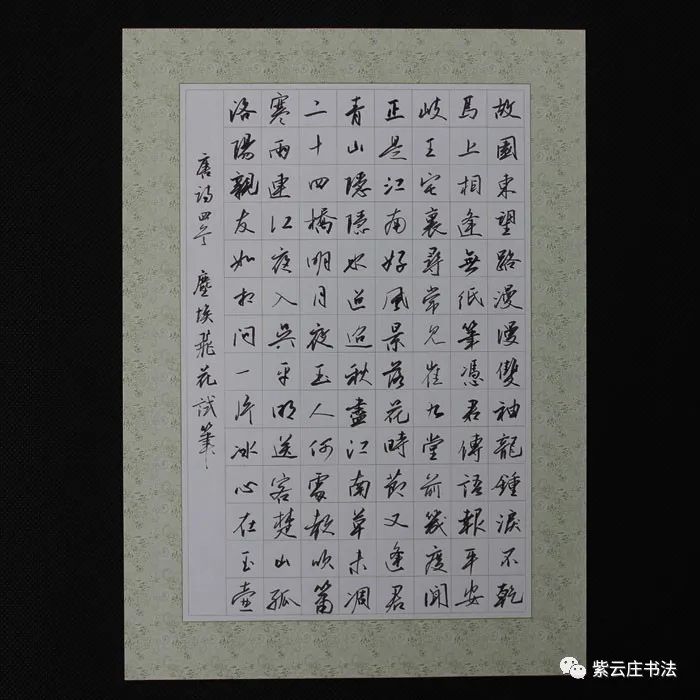 故國東望路漫漫雙袖龍鍾淚不乾
馬上相逢無紙筆憑君傳語報平安
岐王宅裏尋常見崔九堂前幾度聞
正是江南好風景落花時節又逢君
青山隱隱水迢迢秋盡江南草未凋
二十四橋明月夜玉人何處教吹簫
寒雨連江夜入吳平明送客楚山孤
洛陽親友如相問一片冰心在玉壺
唐詩四首 塵埃飛花試筆
紫云庄书法